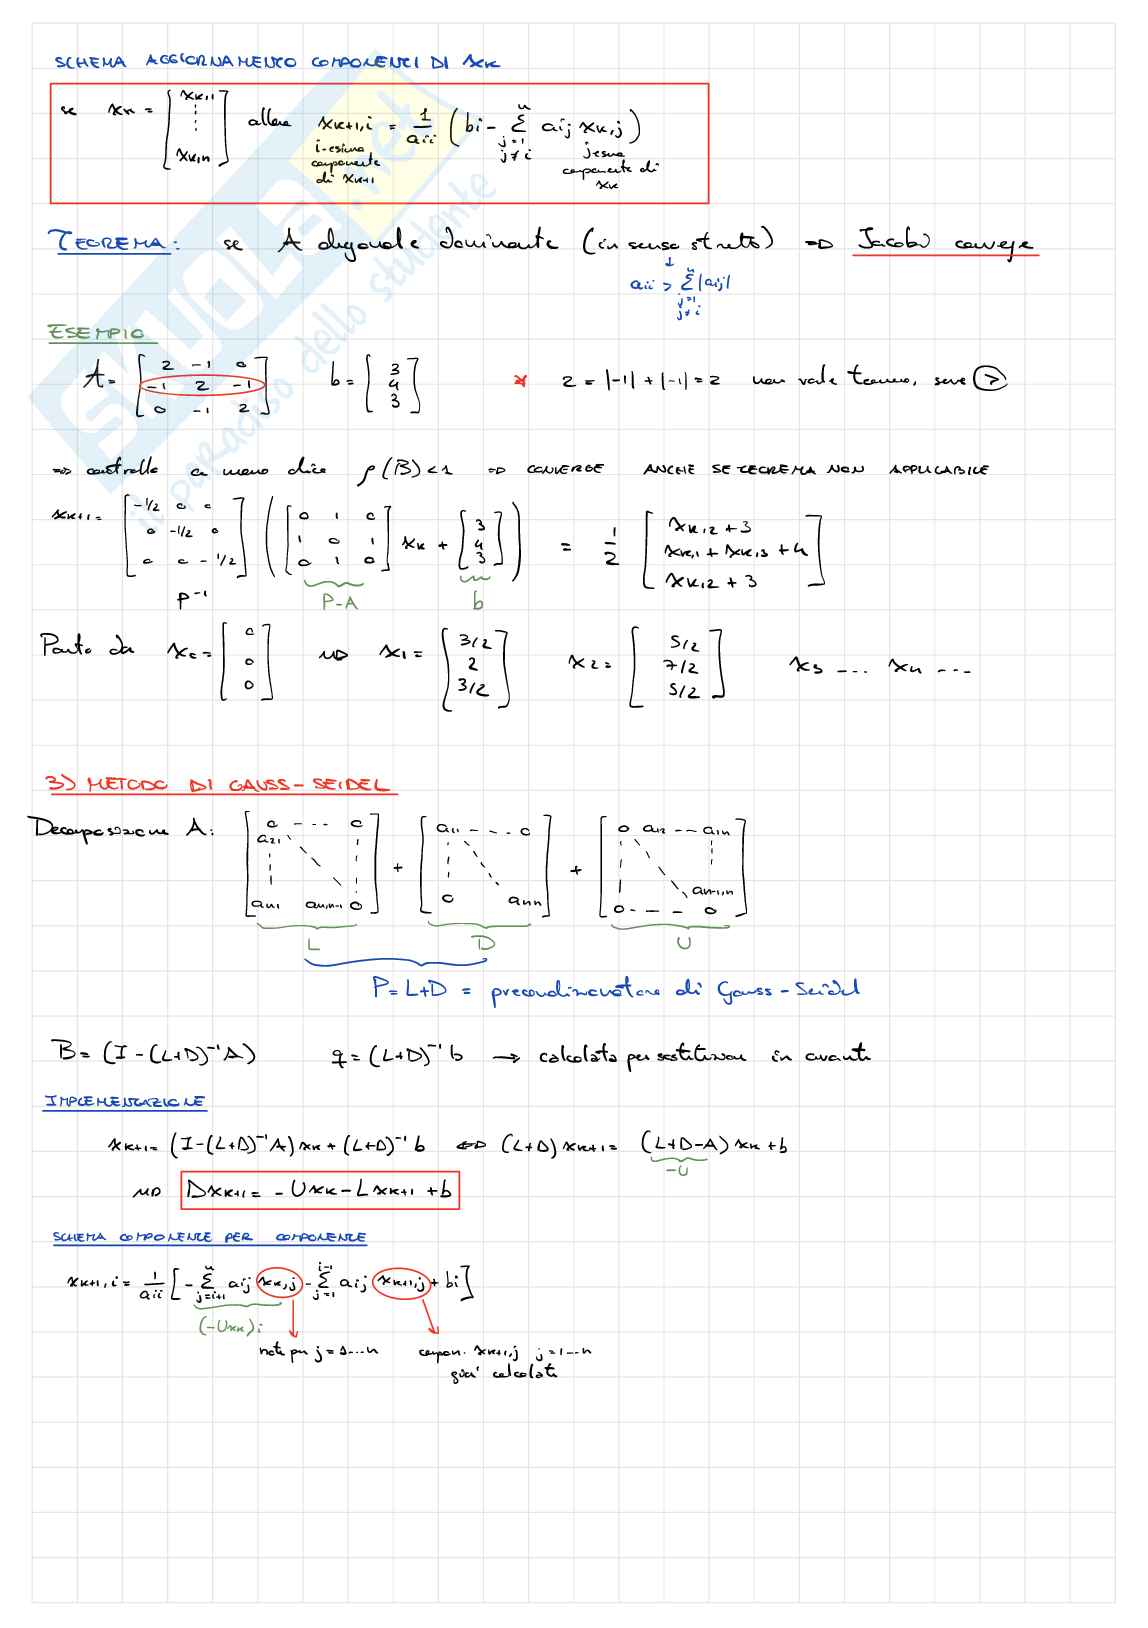 SCHEMA AGGIORNAMENTO COMPONENTI DI xk
se xk = [xk,1 ⋮ xk,n] allora xk+1,i = 1/aii (bi - Σ aij xk,j)
j=1
j≠i
i-esima componente di xk+1
j-esima componente di xk
TEOREMA: se A diagonale dominante (in senso stretto) ⇒ Jacobi converge
aii > Σ |aij|
j=1
j≠i
ESEMPIO
A = [2 -1 0; -1 2 -1; 0 -1 2] b = [3; 4; 3] * 2 = |-1| + |-1| = 2 non vale teorema, serve >
⇒ controllo a mano dice ρ(B)<1 ⇒ CONVERGE ANCHE SE TEOREMA NON APPLICABILE
xk+1 = [-1/2 0 0; 0 -1/2 0; 0 0 -1/2] ([0 1 0; 1 0 1; 0 1 0] xk + [3; 4; 3]) = 1/2 [xk,2 + 3; xk,1 + xk,3 + 4; xk,2 + 3]
P-1 P-A b
Parto da x0 = [0; 0; 0] ⇒ x1 = [3/2; 2; 3/2] x2 = [5/2; 7/2; 5/2] x3 ... xn ...
3) METODO DI GAUSS-SEIDEL
Decomposizione A: [0 --- 0; a21; an1 an,n-1 0] + [a11 --- 0; 0 ann] + [0 a12 -- a1n; an-1,n; 0 --- 0]
L D U
P = L+D = precondizionatore di Gauss-Seidel
B = (I - (L+D)⁻¹A) q = (L+D)⁻¹b → calcolata per sostituzione in avanti
IMPLEMENTAZIONE
xk+1 = (I-(L+D)⁻¹A)xk + (L+D)⁻¹b ⇔ (L+D)xk+1 = (L+D-A)xk + b
-U
⇒ Dxk+1 = -Uxk - Lxk+1 + b
SCHEMA COMPONENTE PER COMPONENTE
xk+1,i = 1/aii [-Σ(j=i+1, n) aij xk,j - Σ(j=1, i-1) aij xk+1,j + bi]
(-Uxk)i
note per j = 1...n
compon. xk+1,j j=1...n
già calcolati